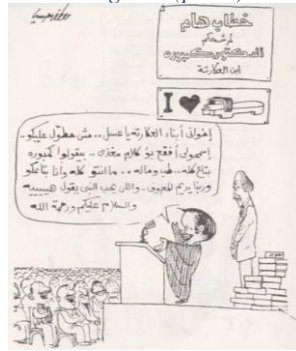 خطاب هام
لمرشحكم
الدكتور كمبوره
ابن العكارته
I
إخواني أبناء العكارته يا عسل .. مش هطول عليكو -
اسمحولي أفقع بؤ كلام مغذي - بيقولوا كمبوره
بتاع كله .. طب وماله .. ما انتو كله وانا بتاعكو
وربنا يريح المجموع - واللي يحب النبي يقول هيييييه
والسلام عليكم ورحمة الله